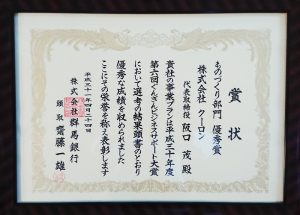 賞状
ものづくり部門 優秀賞
株式会社 クーロン
代表取締役 阪口 茂 殿
貴社の事業プランは平成三十年度
第六回ぐんぎんビジネスサポート大賞
において選考の結果頭書のとおり
優秀な成績を収められました
ここにその栄誉を称え表彰します
平成三十一年四月二十四日
株式会社 群馬銀行
頭取 齋藤一雄